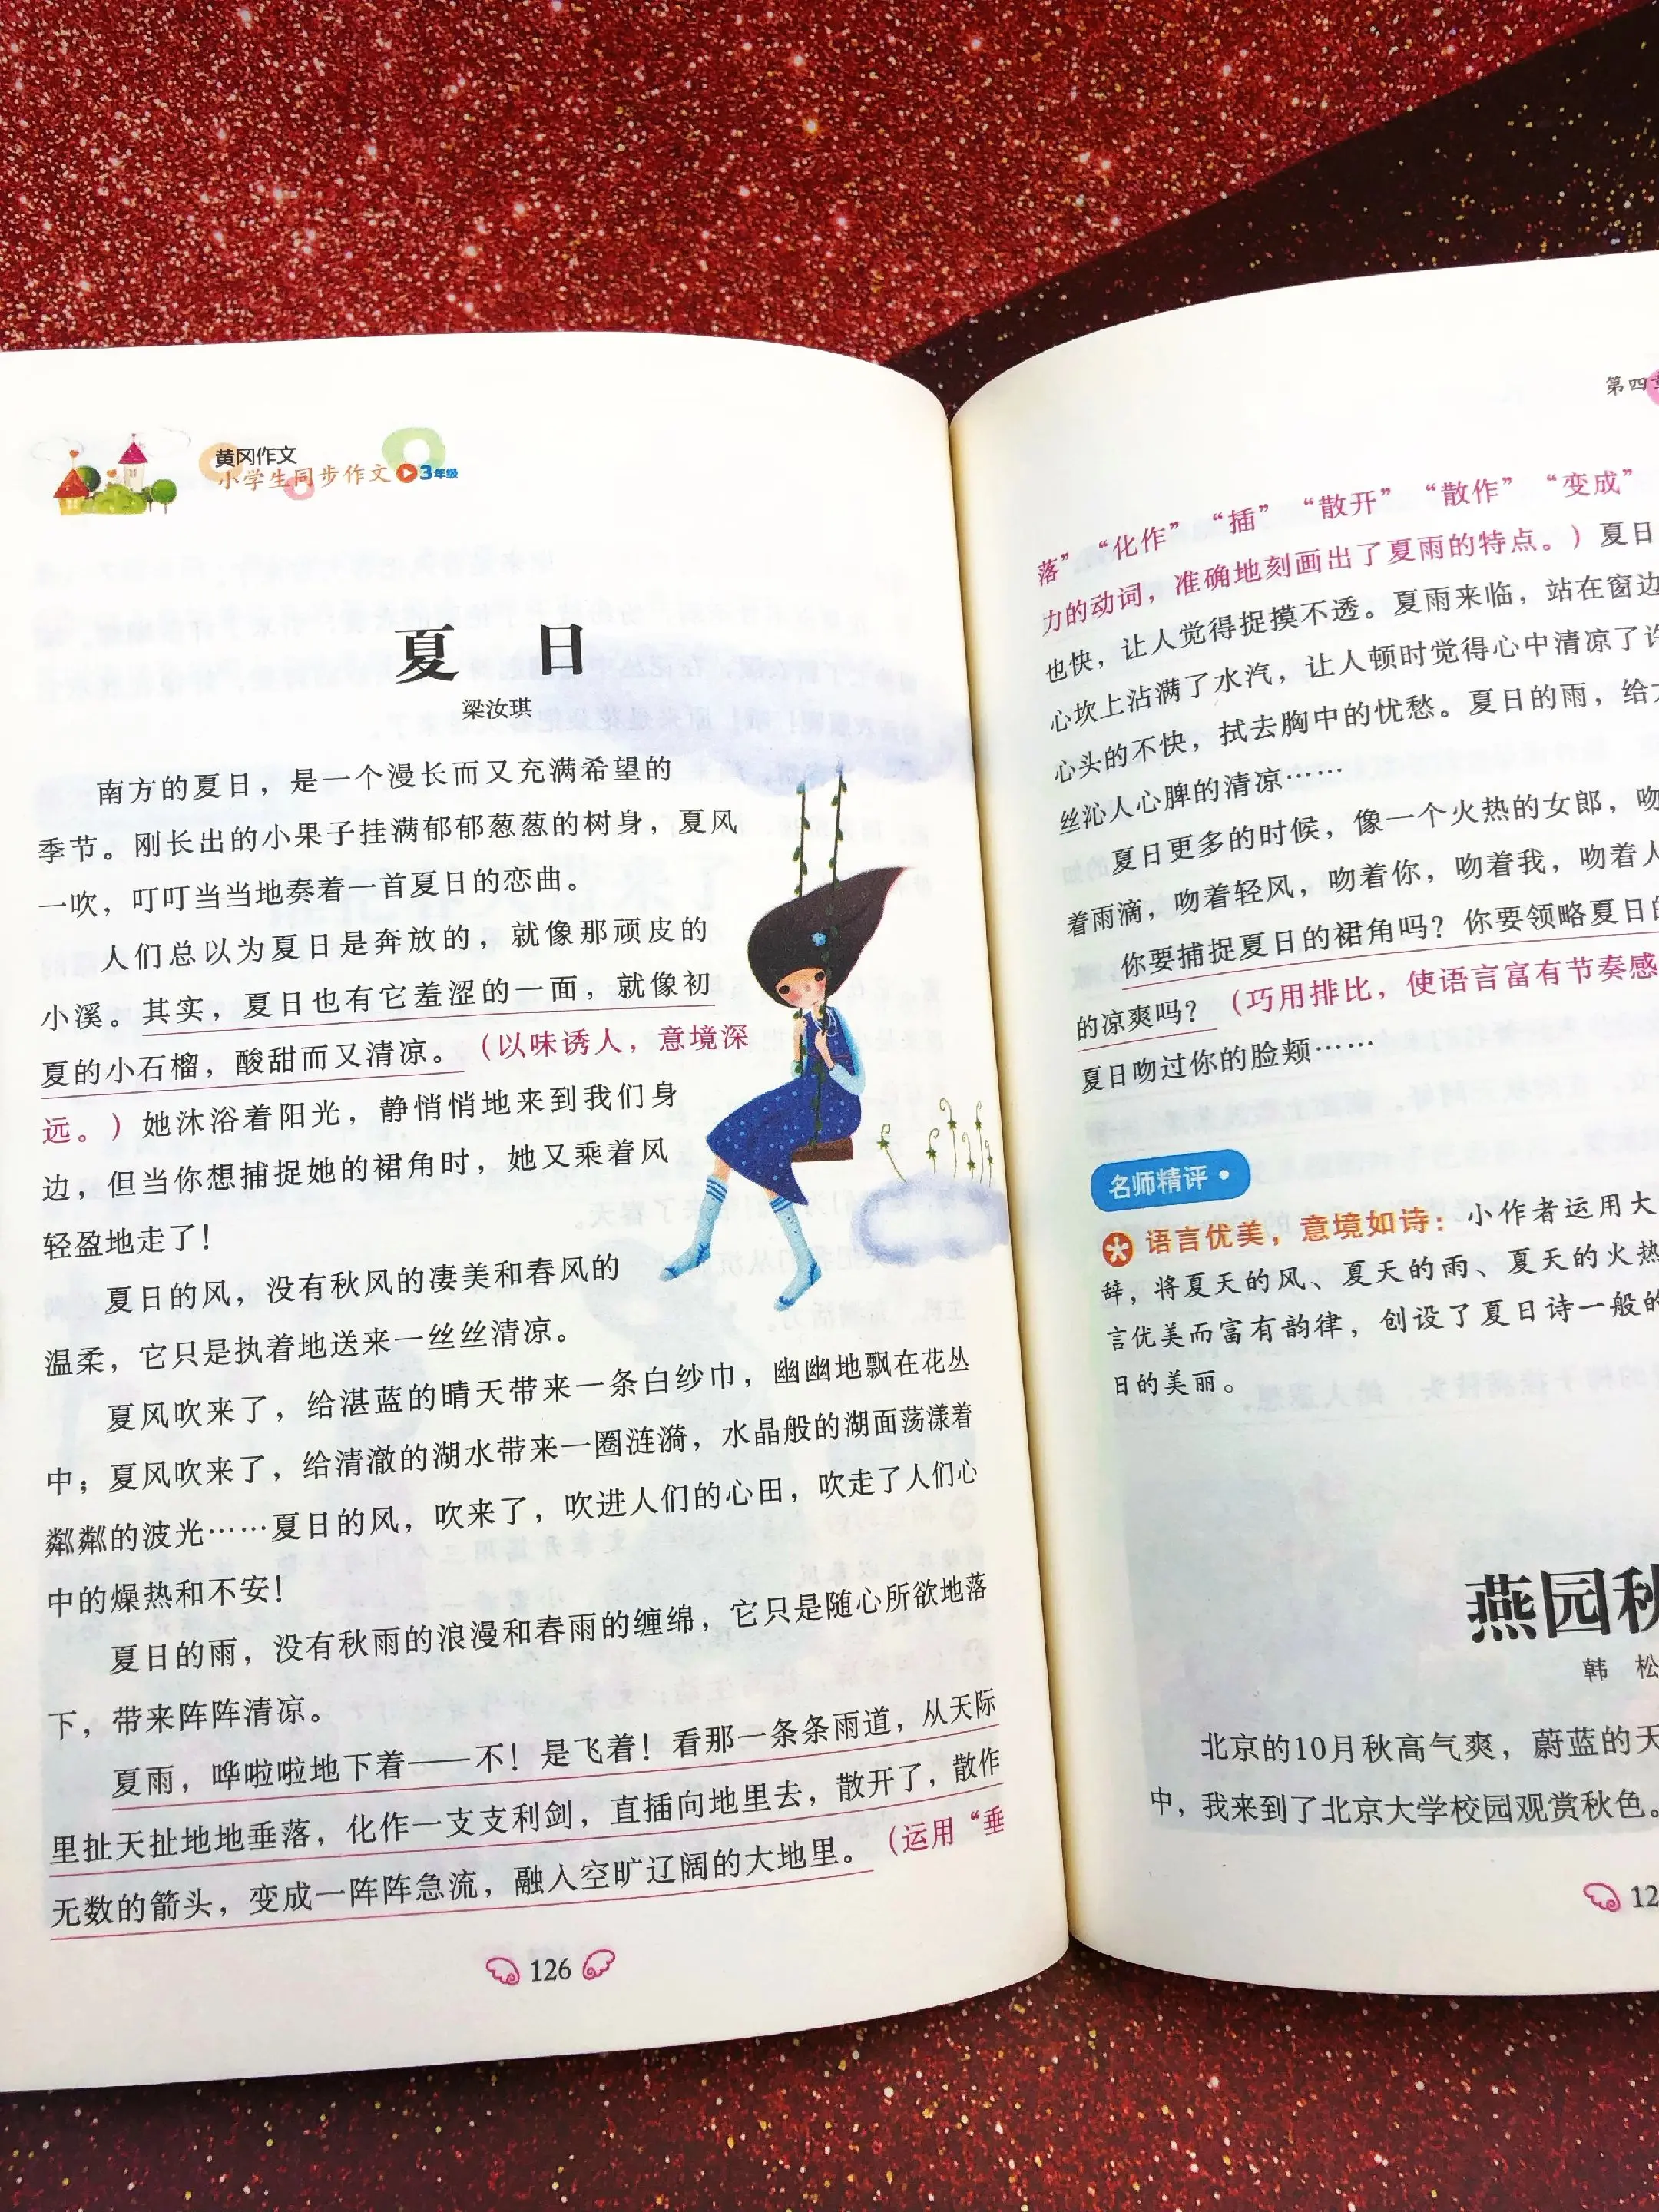 黄冈作文
小学生同步作文 3年级
夏 日
梁汝琪
南方的夏日，是一个漫长而又充满希望的
季节。刚长出的小果子挂满郁郁葱葱的树身，夏风
一吹，叮叮当当地奏着一首夏日的恋曲。
人们总以为夏日是奔放的，就像那顽皮的
小溪。其实，夏日也有它羞涩的一面，就像初
夏的小石榴，酸甜而又清凉。（以味诱人，意境深
远。）她沐浴着阳光，静悄悄地来到我们身
边，但当你想捕捉她的裙角时，她又乘着风
轻盈地走了！
夏日的风，没有秋风的凄美和春风的
温柔，它只是执着地送来一丝丝清凉。
夏风吹来了，给湛蓝的晴天带来一条白纱巾，幽幽地飘在花丛
中；夏风吹来了，给清澈的湖水带来一圈涟漪，水晶般的湖面荡漾着
粼粼的波光……夏日的风，吹来了，吹进人们的心田，吹走了人们心
中的燥热和不安！
夏日的雨，没有秋雨的浪漫和春雨的缠绵，它只是随心所欲地落
下，带来阵阵清凉。
夏雨，哗啦啦地下着——不！是飞着！看那一条条雨道，从天际
里扯天扯地地垂落，化作一支支利剑，直插向地里去，散开了，散作
无数的箭头，变成一阵阵急流，融入空旷辽阔的大地里。（运用“垂
126
第四
落”“化作”“插”“散开”“散作”“变成”
力的动词，准确地刻画出了夏雨的特点。）夏日
也快，让人觉得捉摸不透。夏雨来临，站在窗边
心坎上沾满了水汽，让人顿时觉得心中清凉了许
心头的不快，拭去胸中的忧愁。夏日的雨，给
丝沁人心脾的清凉……
夏日更多的时候，像一个火热的女郎，吻
着雨滴，吻着轻风，吻着你，吻着我，吻着人
你要捕捉夏日的裙角吗？你要领略夏日的
的凉爽吗？（巧用排比，使语言富有节奏感
夏日吻过你的脸颊……
名师精评
语言优美，意境如诗：小作者运用大
辞，将夏天的风、夏天的雨、夏天的火热
言优美而富有韵律，创设了夏日诗一般的
日的美丽。
燕园秋
韩 松
北京的10月秋高气爽，蔚蓝的天
中，我来到了北京大学校园观赏秋色。
12